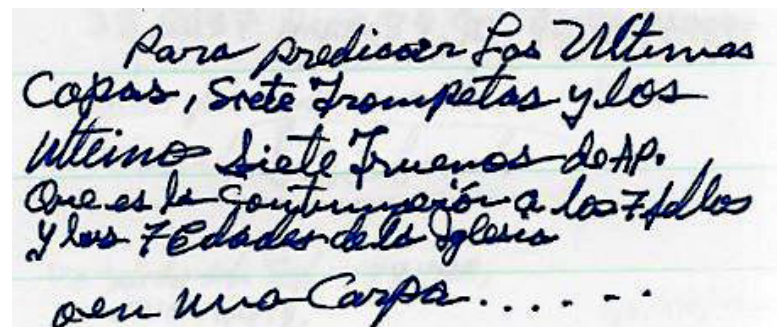 Para predicar Las Ultimas
Copas, Siete Trompetas y los
Ulteino Siete Truenos de AP.
Que es la Continuación a los 7 sellos
y las 7 Edades de la Iglesia
o en una Carpa......